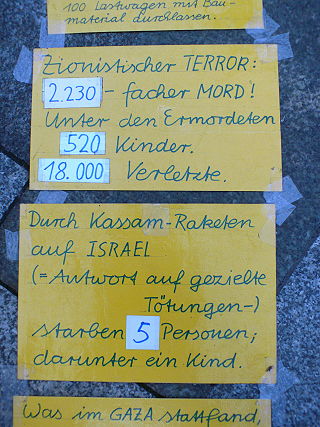 100 Lastwagen mit Bau-
material durchlassen.
Zionistischer TERROR:
2.230 - facher MORD!
Unter den Ermordeten
520 Kinder.
18.000 Verletzte.
Durch Kassam-Raketen
auf ISRAEL
(= Antwort auf gezielte
Tötungen-)
starben 5 Personen;
darunter ein Kind.
Was im GAZA stattfand,